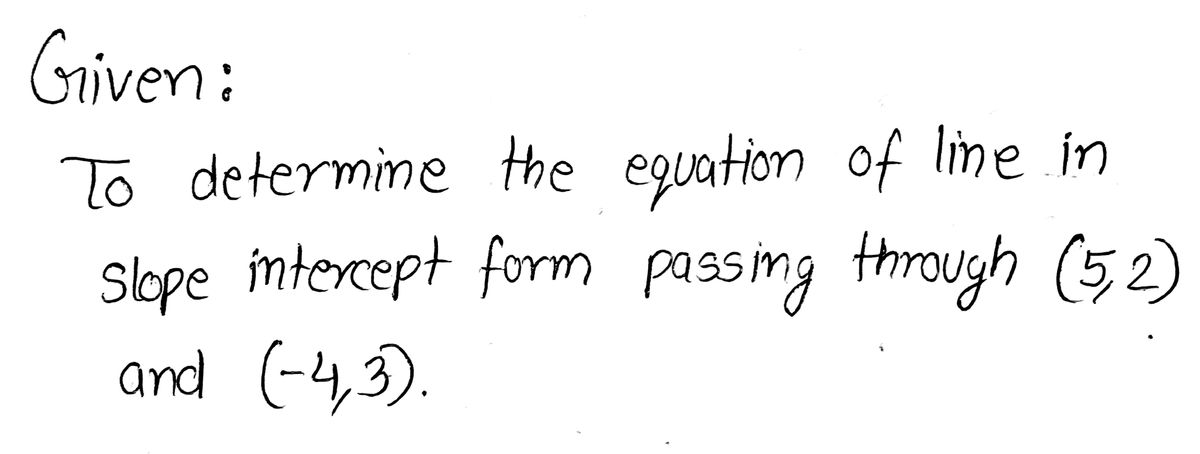 Given:
To determine the equation of line in
slope intercept form passing through (5,2)
and (-4,3).